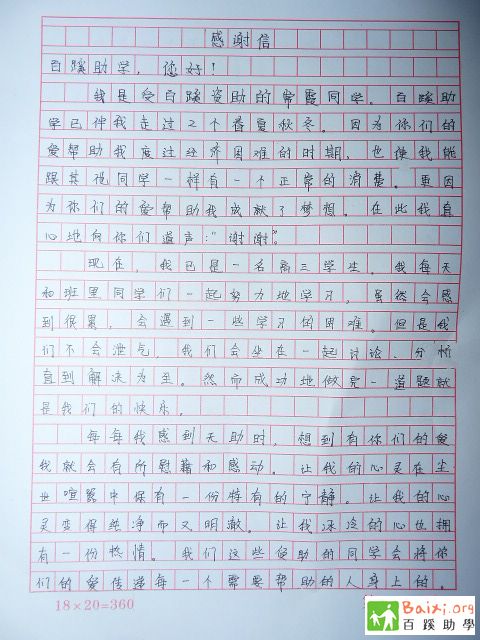 感谢信
百蹊助学，您好！
我是受百蹊资助的常霞同学。百蹊助
学已伴我走过2个春夏秋冬。因为你们的
爱帮助我度过经济困难的时期，也使我能
跟其他同学一样有一个正常的消费。更因
为你们的爱帮助我成就了梦想。在此我真
心地向你们道声："谢谢"。
现在，我已是一名高三学生。我每天
和班里同学们一起努力地学习，虽然会感
到很累，会遇到一些学习的困难。但是我
们不会泄气，我们会坐在一起讨论、分析
直到解决为至。然而成功地做完一道题就
是我们的快乐，
每每我感到无助时，想到有你们的爱
我就会有所慰藉和感动。让我的心灵在尘
世喧嚣中保有一份特有的宁静。让我的心
灵变得纯净而又明澈。让我冰冷的心也拥
有一份热情。我们这些受助的同学会将你
们的爱传递每一个需要帮助的人身上的。
18×20=360
Baixi.org
百蹊助學